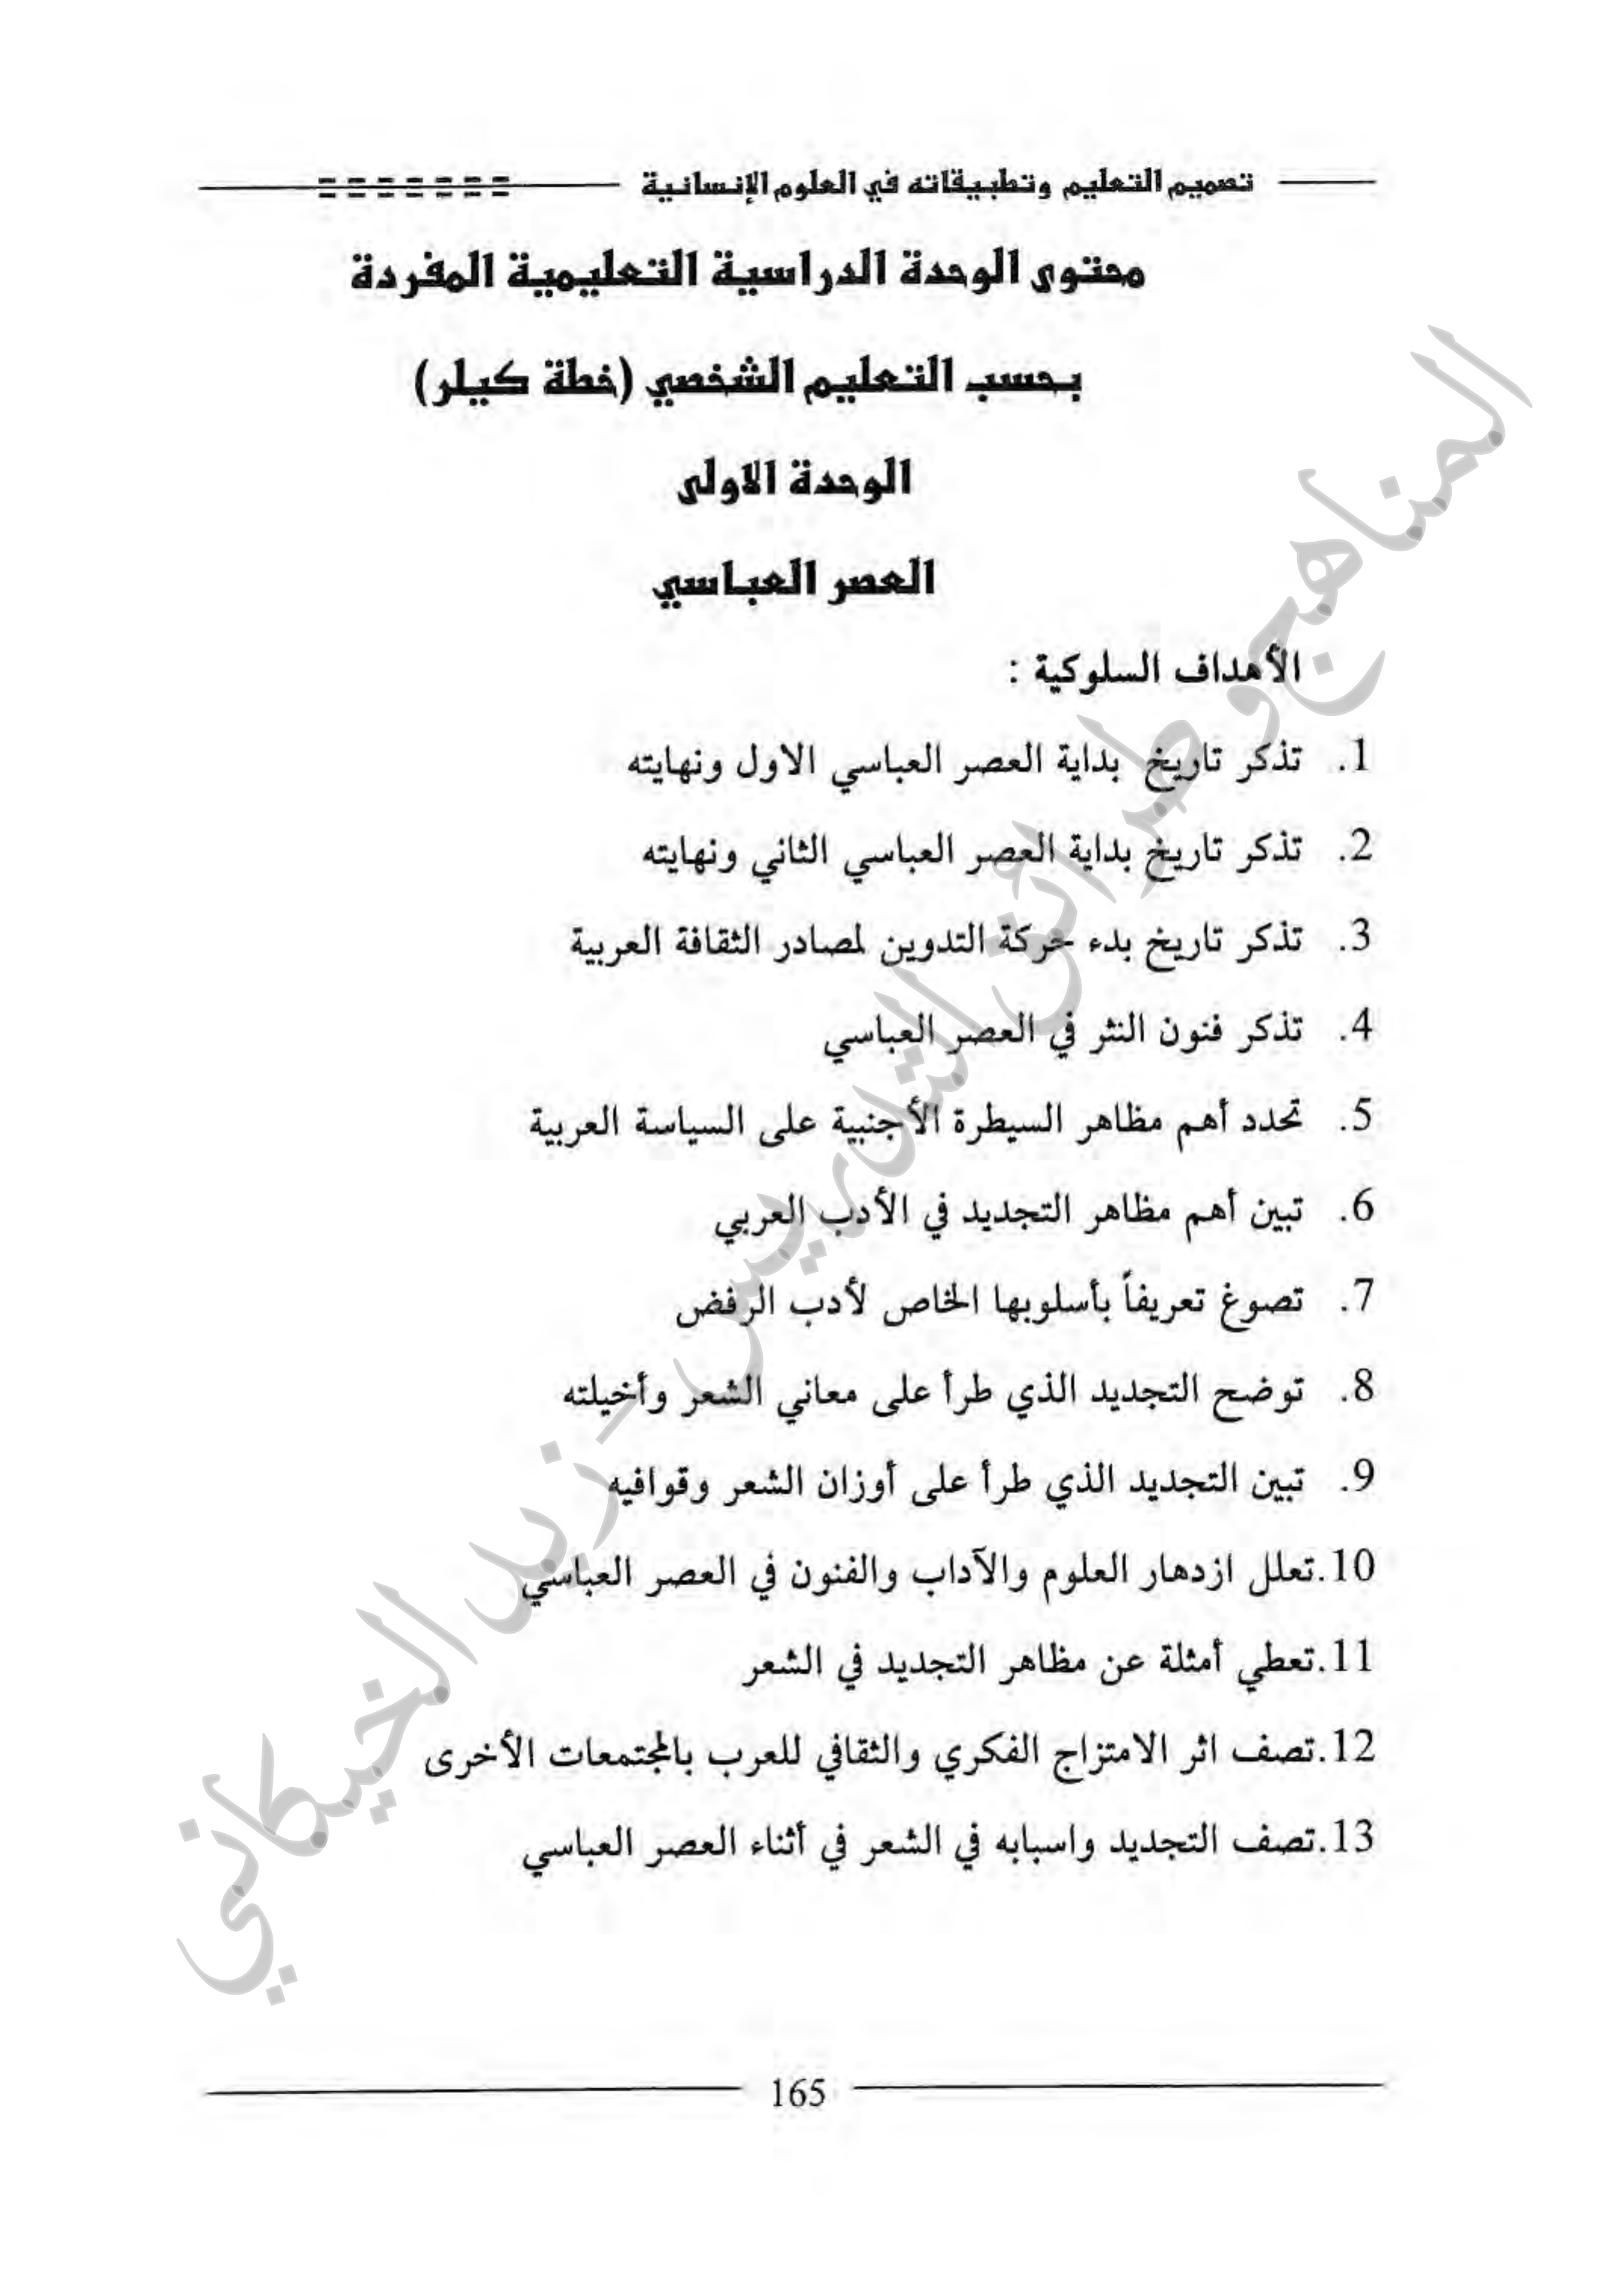 تصميم التعليم وتطبيقاته في العلوم الإنسانية
محتوى الوحدة الدراسية التعليمية المفردة
بحسب التعليم الشخصي (خطة كيلر)
الوحدة الاولى
العصر العباسي
الأهداف السلوكية :
1. تذكر تاريخ بداية العصر العباسي الاول ونهايته
2. تذكر تاريخ بداية العصر العباسي الثاني ونهايته
3. تذكر تاريخ بدء حركة التدوين لمصادر الثقافة العربية
4. تذكر فنون النثر في العصر العباسي
5. تحدد أهم مظاهر السيطرة الأجنبية على السياسة العربية
6. تبين أهم مظاهر التجديد في الأدب العربي
7. تصوغ تعريفاً بأسلوبها الخاص لأدب الرفض
8. توضح التجديد الذي طرأ على معاني الشعر وأخيلته
9. تبين التجديد الذي طرأ على أوزان الشعر وقوافيه
10.تعلل ازدهار العلوم والآداب والفنون في العصر العباسي
11.تعطي أمثلة عن مظاهر التجديد في الشعر
12.تصف اثر الامتزاج الفكري والثقافي للعرب بالمجتمعات الأخرى
13.تصف التجديد واسبابه في الشعر في أثناء العصر العباسي
165
المناهج وطرائق التدريس - زيد الخيكاني